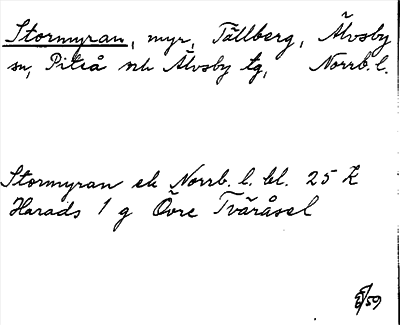 Stormyran, myr, Tällberg, Älvsby
sn, Piteå och Älvsby tg, Norrb. l.
Stormyran ek Norrb. l. bl. 25 K
Harads 1 g Övre Tväråsel
/59